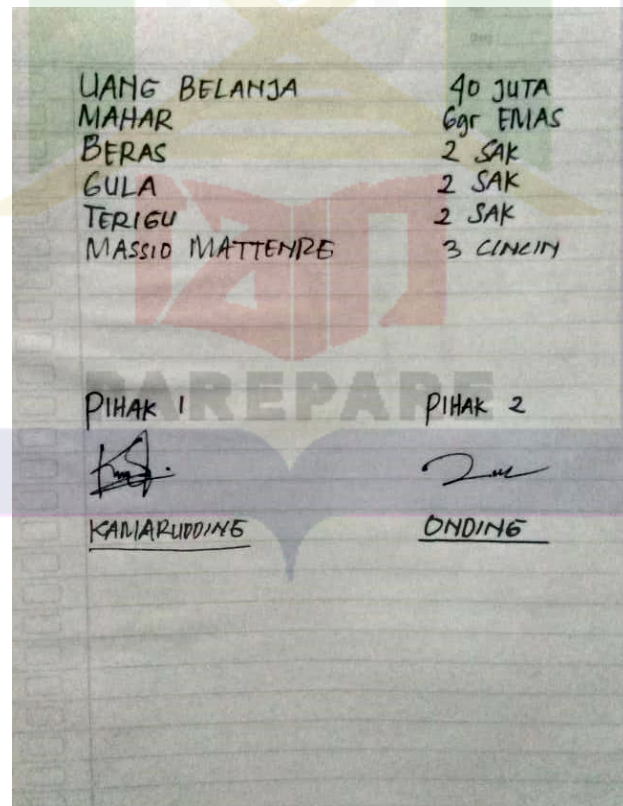 UANG BELANJA 40 JUTA
MAHAR 6gr EMAS
BERAS 2 SAK
GULA 2 SAK
TERIGU 2 SAK
MASSIO MATTENRE 3 CINCIN
PIHAK 1 PIHAK 2
KAMARUDDING ONDING
PAREPARE